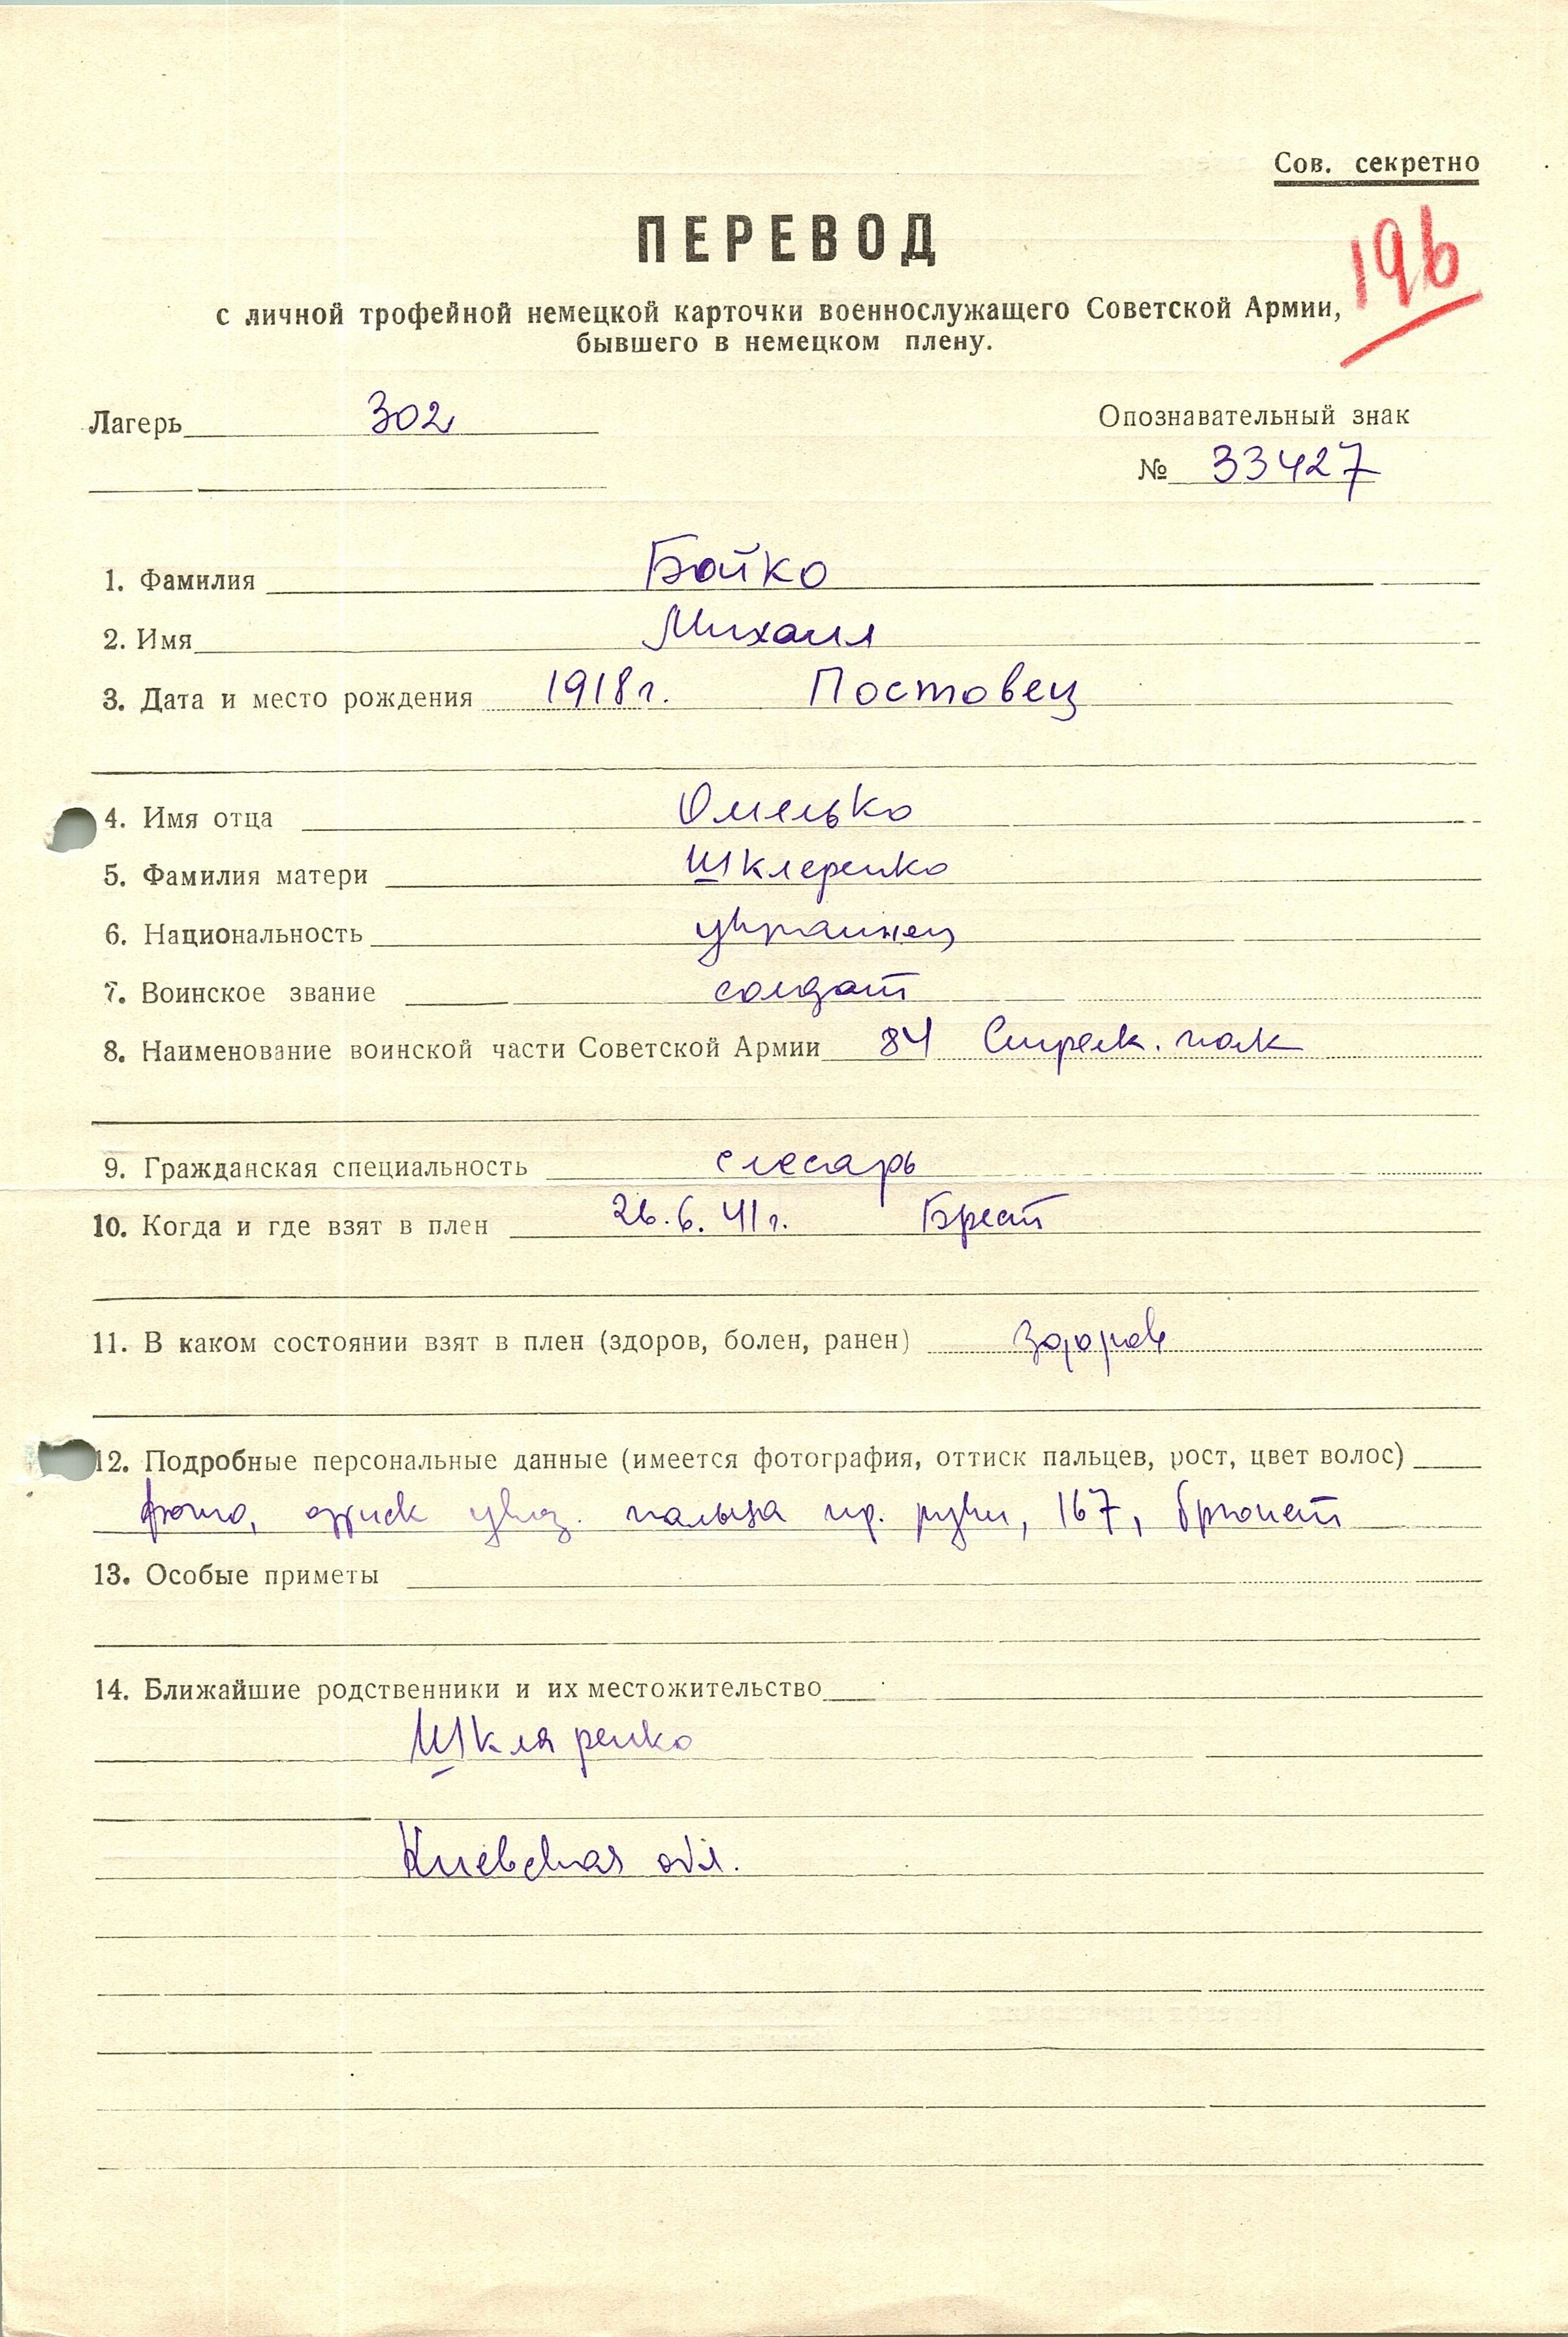 Сов. секретно
ПЕРЕВОД
196
с личной трофейной немецкой карточки военнослужащего Советской Армии,
бывшего в немецком плену.
Лагерь 302
Опознавательный знак
№ 33427
1. Фамилия Бойко
2. Имя Михаил
3. Дата и место рождения 1918 г. Постовец
4. Имя отца Омелько
5. Фамилия матери Шклеренко
6. Национальность украинец
7. Воинское звание солдат
8. Наименование воинской части Советской Армии 84 Стрелк. полк
9. Гражданская специальность слесарь
10. Когда и где взят в плен 26.6.41 г. Брест
11. В каком состоянии взят в плен (здоров, болен, ранен) здоров
12. Подробные персональные данные (имеется фотография, оттиск пальцев, рост, цвет волос)
фото, оттиск указ. пальца пр. руки, 167, брюнет
13. Особые приметы
14. Ближайшие родственники и их местожительство
Шкляренко
Киевская обл.